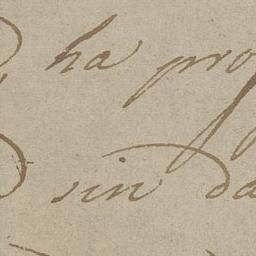 ha pro
sin da